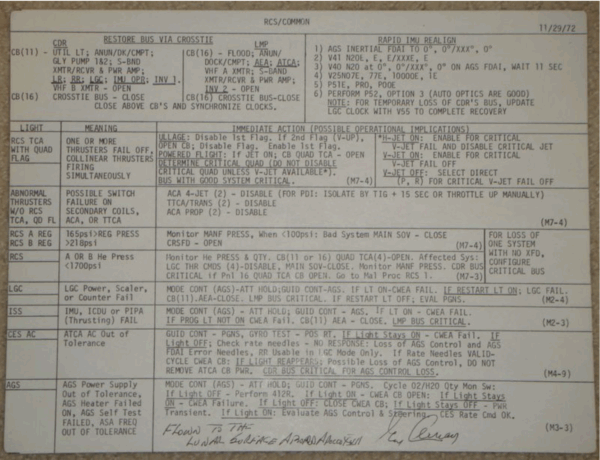 RCS/COMMON
11/29/72
CDR RESTORE BUS VIA CROSSTIE LMP
CB(11) - UTIL LT; ANUN/DK/CMPT;
GLY PUMP 1&2; S-BND
XMTR/RCVR & PWR AMP;
LR; RR; LGC; IMU OPR; INV 1.
VHF B XMTR - OPEN
CB(16) CROSSTIE BUS - CLOSE
CB(16) - FLOOD; ANUN/
DOCK/CMPT; AEA; ATCA;
VHF A XMTR; S-BAND
XMTR/RCVR & PWR AMP;
INV 2 - OPEN
CB(16) CROSSTIE BUS-CLOSE
CLOSE ABOVE CB'S AND SYNCHRONIZE CLOCKS.
RAPID IMU REALIGN
1) AGS INERTIAL FDAI TO 0°, 0°/XXX°, 0°
2) V41 N20E, E, E/XXXE, E
3) V40 N20 at 0°, 0°/XXX°, 0° ON AGS FDAI, WAIT 11 SEC
4) V25N07E, 77E, 10000E, 1E
5) P51E, PRO, P00E
6) PERFORM P52, OPTION 3 (AUTO OPTICS ARE GOOD)
NOTE: FOR TEMPORARY LOSS OF CDR'S BUS, UPDATE
LGC CLOCK WITH V55 TO COMPLETE RECOVERY
LIGHT MEANING IMMEDIATE ACTION (POSSIBLE OPERATIONAL IMPLICATIONS)
RCS TCA
WITH QUAD
FLAG
ONE OR MORE
THRUSTERS FAIL OFF,
COLLINEAR THRUSTERS
FIRING
SIMULTANEOUSLY
ULLAGE: Disable 1st Flag. If 2nd Flag (V-UP),
OPEN CB; Disable Flag. Enable 1st Flag.
POWERED FLIGHT: If JET ON; CB QUAD TCA - OPEN
DETERMINE CRITICAL QUAD (DO NOT DISABLE
CRITICAL QUAD UNLESS V-JET AVAILABLE*).
BUS WITH GOOD SYSTEM CRITICAL. (M7-4)
*H-JET ON: ENABLE FOR CRITICAL
V-JET FAIL AND DISABLE CRITICAL JET
V-JET ON: ENABLE FOR CRITICAL
V-JET FAIL OFF
V-JET OFF: SELECT DIRECT
(P, R) FOR CRITICAL V-JET FAIL OFF
ABNORMAL
THRUSTERS
W/O RCS
TCA, QD FL
POSSIBLE SWITCH
FAILURE ON
SECONDARY COILS,
ACA, OR TTCA
ACA 4-JET (2) - DISABLE (FOR PDI: ISOLATE BY TIG + 15 SEC OR THROTTLE UP MANUALLY)
TTCA/TRANS (2) - DISABLE
ACA PROP (2) - DISABLE
(M7-4)
RCS A REG
RCS B REG
165psi>REG PRESS
>218psi
Monitor MANF PRESS, When <100psi: Bad System MAIN SOV - CLOSE
CRSFD - OPEN (M7-4)
FOR LOSS OF
ONE SYSTEM
WITH NO XFD,
CONFIGURE
CRITICAL BUS
RCS
A OR B He Press
<1700psi
Monitor He PRESS & QTY. CB(11) or 16) QUAD TCA(4)-OPEN. Affected Sys:
LGC THR CMDS (4)-DISABLE, MAIN SOV-CLOSE. Monitor MANF PRESS. CDR BUS
CRITICAL if Pnl 16 QUAD TCA CB OPEN. Go to Mal Proc RCS 1. (M7-3)
LGC
LGC Power, Scaler,
or Counter Fail
MODE CONT (AGS)-ATT HOLD;GUID CONT-AGS. IF LT ON-CWEA FAIL. IF RESTART LT ON; LGC FAIL.
CB(11).AEA-CLOSE. LMP BUS CRITICAL. IF RESTART LT OFF; EVAL PGNS. (M2-4)
ISS
IMU, ICDU or PIPA
(Thrusting) FAIL
MODE CONT (AGS) - ATT HOLD; GUID CONT - AGS. IF LT ON - CWEA FAIL.
IF PROG LT NOT ON CWEA Fail. CB(11) AEA - CLOSE. LMP BUS CRITICAL. (M2-3)
CES AC
ATCA AC Out of
Tolerance
GUID CONT - PGNS, GYRO TEST - POS RT. If Light Stays ON - CWEA Fail. IF
Light OFF: Check rate needles - NO RESPONSE: Loss of AGS Control and AGS
FDAI Error Needles, RR Usable in LGC Mode Only. If Rate Needles VALID-
CYCLE CWEA CB: IF LIGHT REAPPEARS: Possible Loss of AGS Control, DO NOT
REMOVE ATCA CB PWR. CDR BUS CRITICAL FOR AGS CONTROL LOSS. (M4-9)
AGS
AGS Power Supply
Out of Tolerance,
AGS Heater Failed
ON, AGS Self Test
FAILED, ASA FREQ
OUT OF TOLERANCE
MODE CONT (AGS) - ATT HOLD; GUID CONT - PGNS. Cycle O2/H2O Qty Mon Sw:
If Light OFF - Perform 412R. If Light ON - CWEA CB OPEN: If Light Stays
ON - CWEA Failure. If Light OFF: CLOSE CWEA CB; If Light Stays OFF - PWR
Transient. If Light ON: Evaluate AGS Control & Steering, CES Rate Cmd OK.
(M3-3)
FLOWN TO THE
LUNAR SURFACE ABOARD APOLLO XVII
Gene Cernan